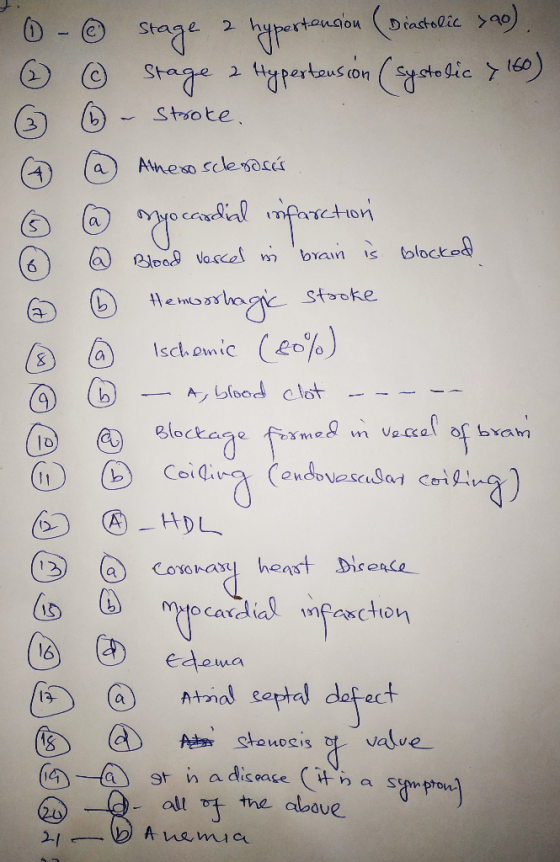 ① - ⓒ stage 2 hypertension (Diastolic >90).
② ⓒ Stage 2 Hypertension (systolic > 160)
③ ⓑ - Stroke.
④ ⓐ Atherosclerosis
⑤ ⓐ myocardial infarction
⑥ ⓐ Blood vessel in brain is blocked.
⑦ ⓑ Hemorrhagic stroke
⑧ ⓐ Ischemic (80%)
⑨ ⓑ — A, blood clot - - - - -
⑩ ⓐ Blockage formed in vessel of brain
⑪ ⓑ Coiling (endovascular coiling)
⑫ Ⓐ - HDL
⑬ ⓐ coronary heart Disease
⑮ ⓑ myocardial infarction
⑯ ⓓ Edema
⑰ ⓐ Atrial septal defect
⑱ ⓓ stenosis of valve
⑲ — ⓐ It is a disease (it is a symptom)
⑳ — ⓓ - all of the above
21 — ⓑ Anemia